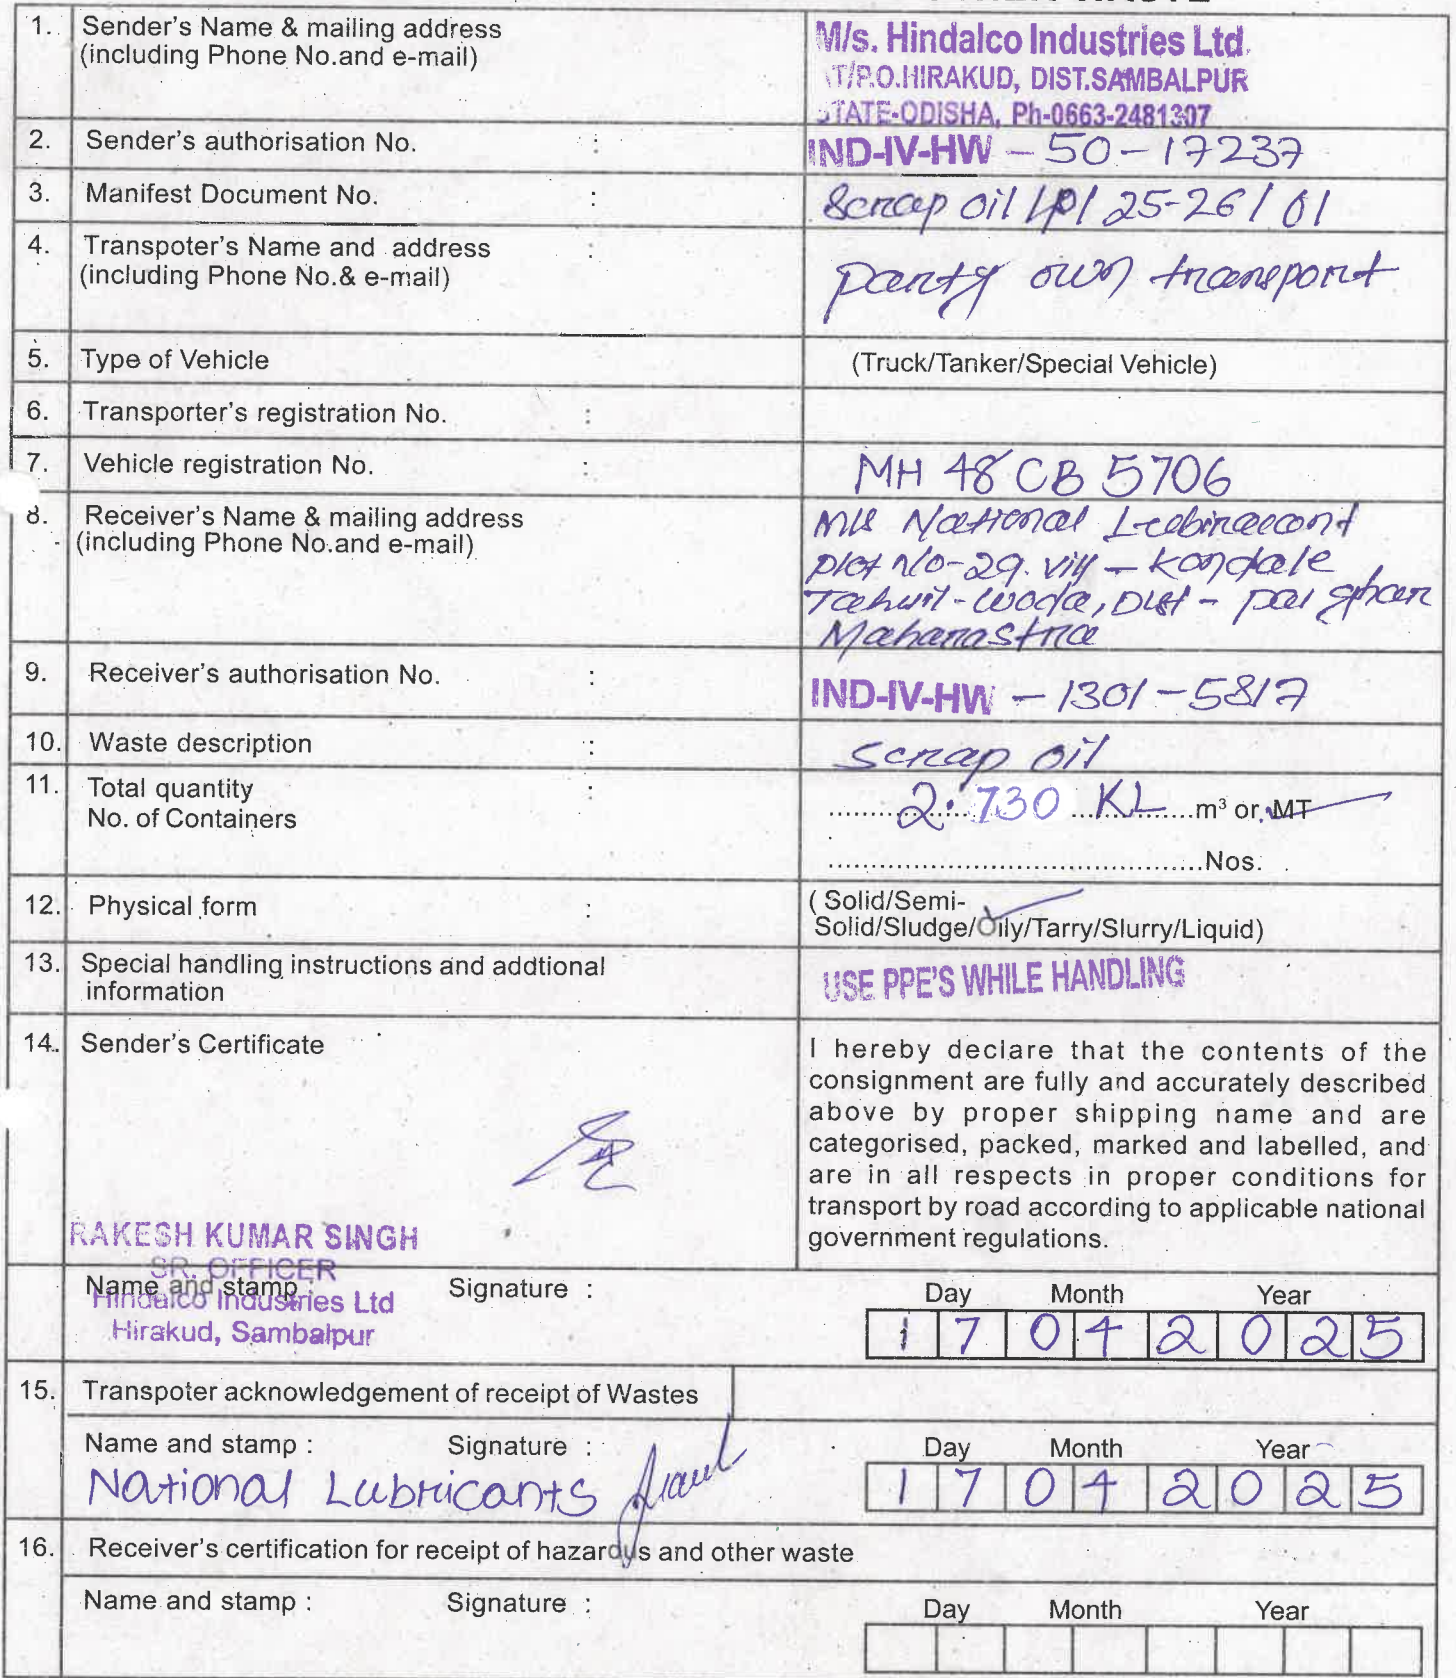 1. Sender's Name & mailing address
(including Phone No.and e-mail)
M/s. Hindalco Industries Ltd.
AT/P.O.HIRAKUD, DIST.SAMBALPUR
STATE-ODISHA, Ph-0663-2481307
2. Sender's authorisation No. : IND-IV-HW - 50-17237
3. Manifest Document No. : Scrap oil /P/ 25-26/01
4. Transpoter's Name and address :
(including Phone No.& e-mail)
party own transport
5. Type of Vehicle (Truck/Tanker/Special Vehicle)
6. Transporter's registration No. :
7. Vehicle registration No. : MH 48 CB 5706
8. Receiver's Name & mailing address
(including Phone No.and e-mail)
M/s National Lubiracont
plot No-29. vill - kondale
Tahsil-woda, Dist - pal ghar
Maharastra
9. Receiver's authorisation No. : IND-IV-HW - 1301-5817
10. Waste description : scrap oil
11. Total quantity :
No. of Containers
2.730 KL m³ or MT
Nos.
12. Physical form :
(Solid/Semi-
Solid/Sludge/Oily/Tarry/Slurry/Liquid)
13. Special handling instructions and addtional
information
USE PPE'S WHILE HANDLING
14. Sender's Certificate
I hereby declare that the contents of the
consignment are fully and accurately described
above by proper shipping name and are
categorised, packed, marked and labelled, and
are in all respects in proper conditions for
transport by road according to applicable national
government regulations.
RAKESH KUMAR SINGH
SR. OFFICER
Name and stamp : Signature :
Hindalco Industries Ltd
Hirakud, Sambalpur
Day Month Year
1 7 0 4 2 0 2 5
15. Transpoter acknowledgement of receipt of Wastes
Name and stamp : Signature :
National Lubricants
Day Month Year
1 7 0 4 2 0 2 5
16. Receiver's certification for receipt of hazardus and other waste
Name and stamp : Signature :
Day Month Year